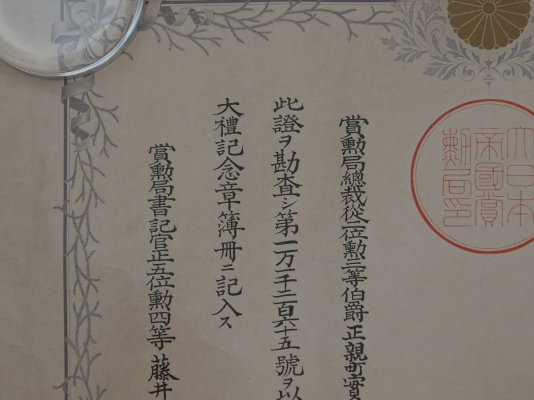 大日本
帝國賞
勳局印
賞勳局總裁從二位勳三等伯爵正親町實
此證ヲ勘査シ第一万一千二百六十五號ヲ以
大禮記念章簿冊ニ記入ス
賞勳局書記官正五位勳四等藤井